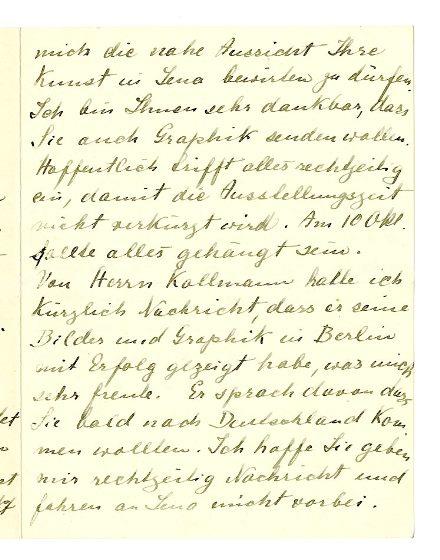 mich die nahe Aussicht Ihre
Kunst in Jena bewirten zu dürfen.
Ich bin Ihnen sehr dankbar, dass
Sie auch Graphik senden wollen.
Hoffentlich trifft alles rechtzeitig
ein, damit die Ausstellungszeit
nicht verkürzt wird. Am 10 Okt.
sollte alles gehängt sein.
Von Herrn Kallmann hatte ich
kürzlich Nachricht, dass er seine
Bilder und Graphik in Berlin
mit Erfolg gezeigt habe, was mich
sehr freute. Er sprach davon dass
Sie bald nach Deutschland kom
men wollten. Ich hoffe Sie geben
mir rechtzeitig Nachricht und
fahren an Jena nicht vorbei.